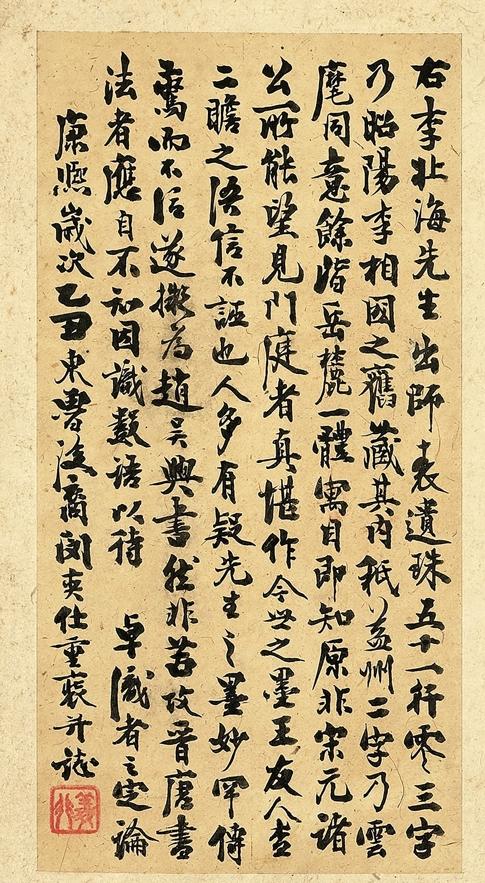 右李北海先生出師表遺珠五十一行零三字
乃昭陽李相國之舊藏其内秖益州二字乃雲
麾同意餘皆岳麓一體寓目即知原非宋元諸
公所能望見門庭者真堪作今世之墨王友人查
二瞻之語信不誣也人多有疑先生之墨妙罕傳
焉而不信遂擬為趙吳興書然非苦攻晉唐書
法者應自不知因識數語以待 卓識者之定論
康熙歲次乙丑東魯後裔閔奕仕重裝并誌